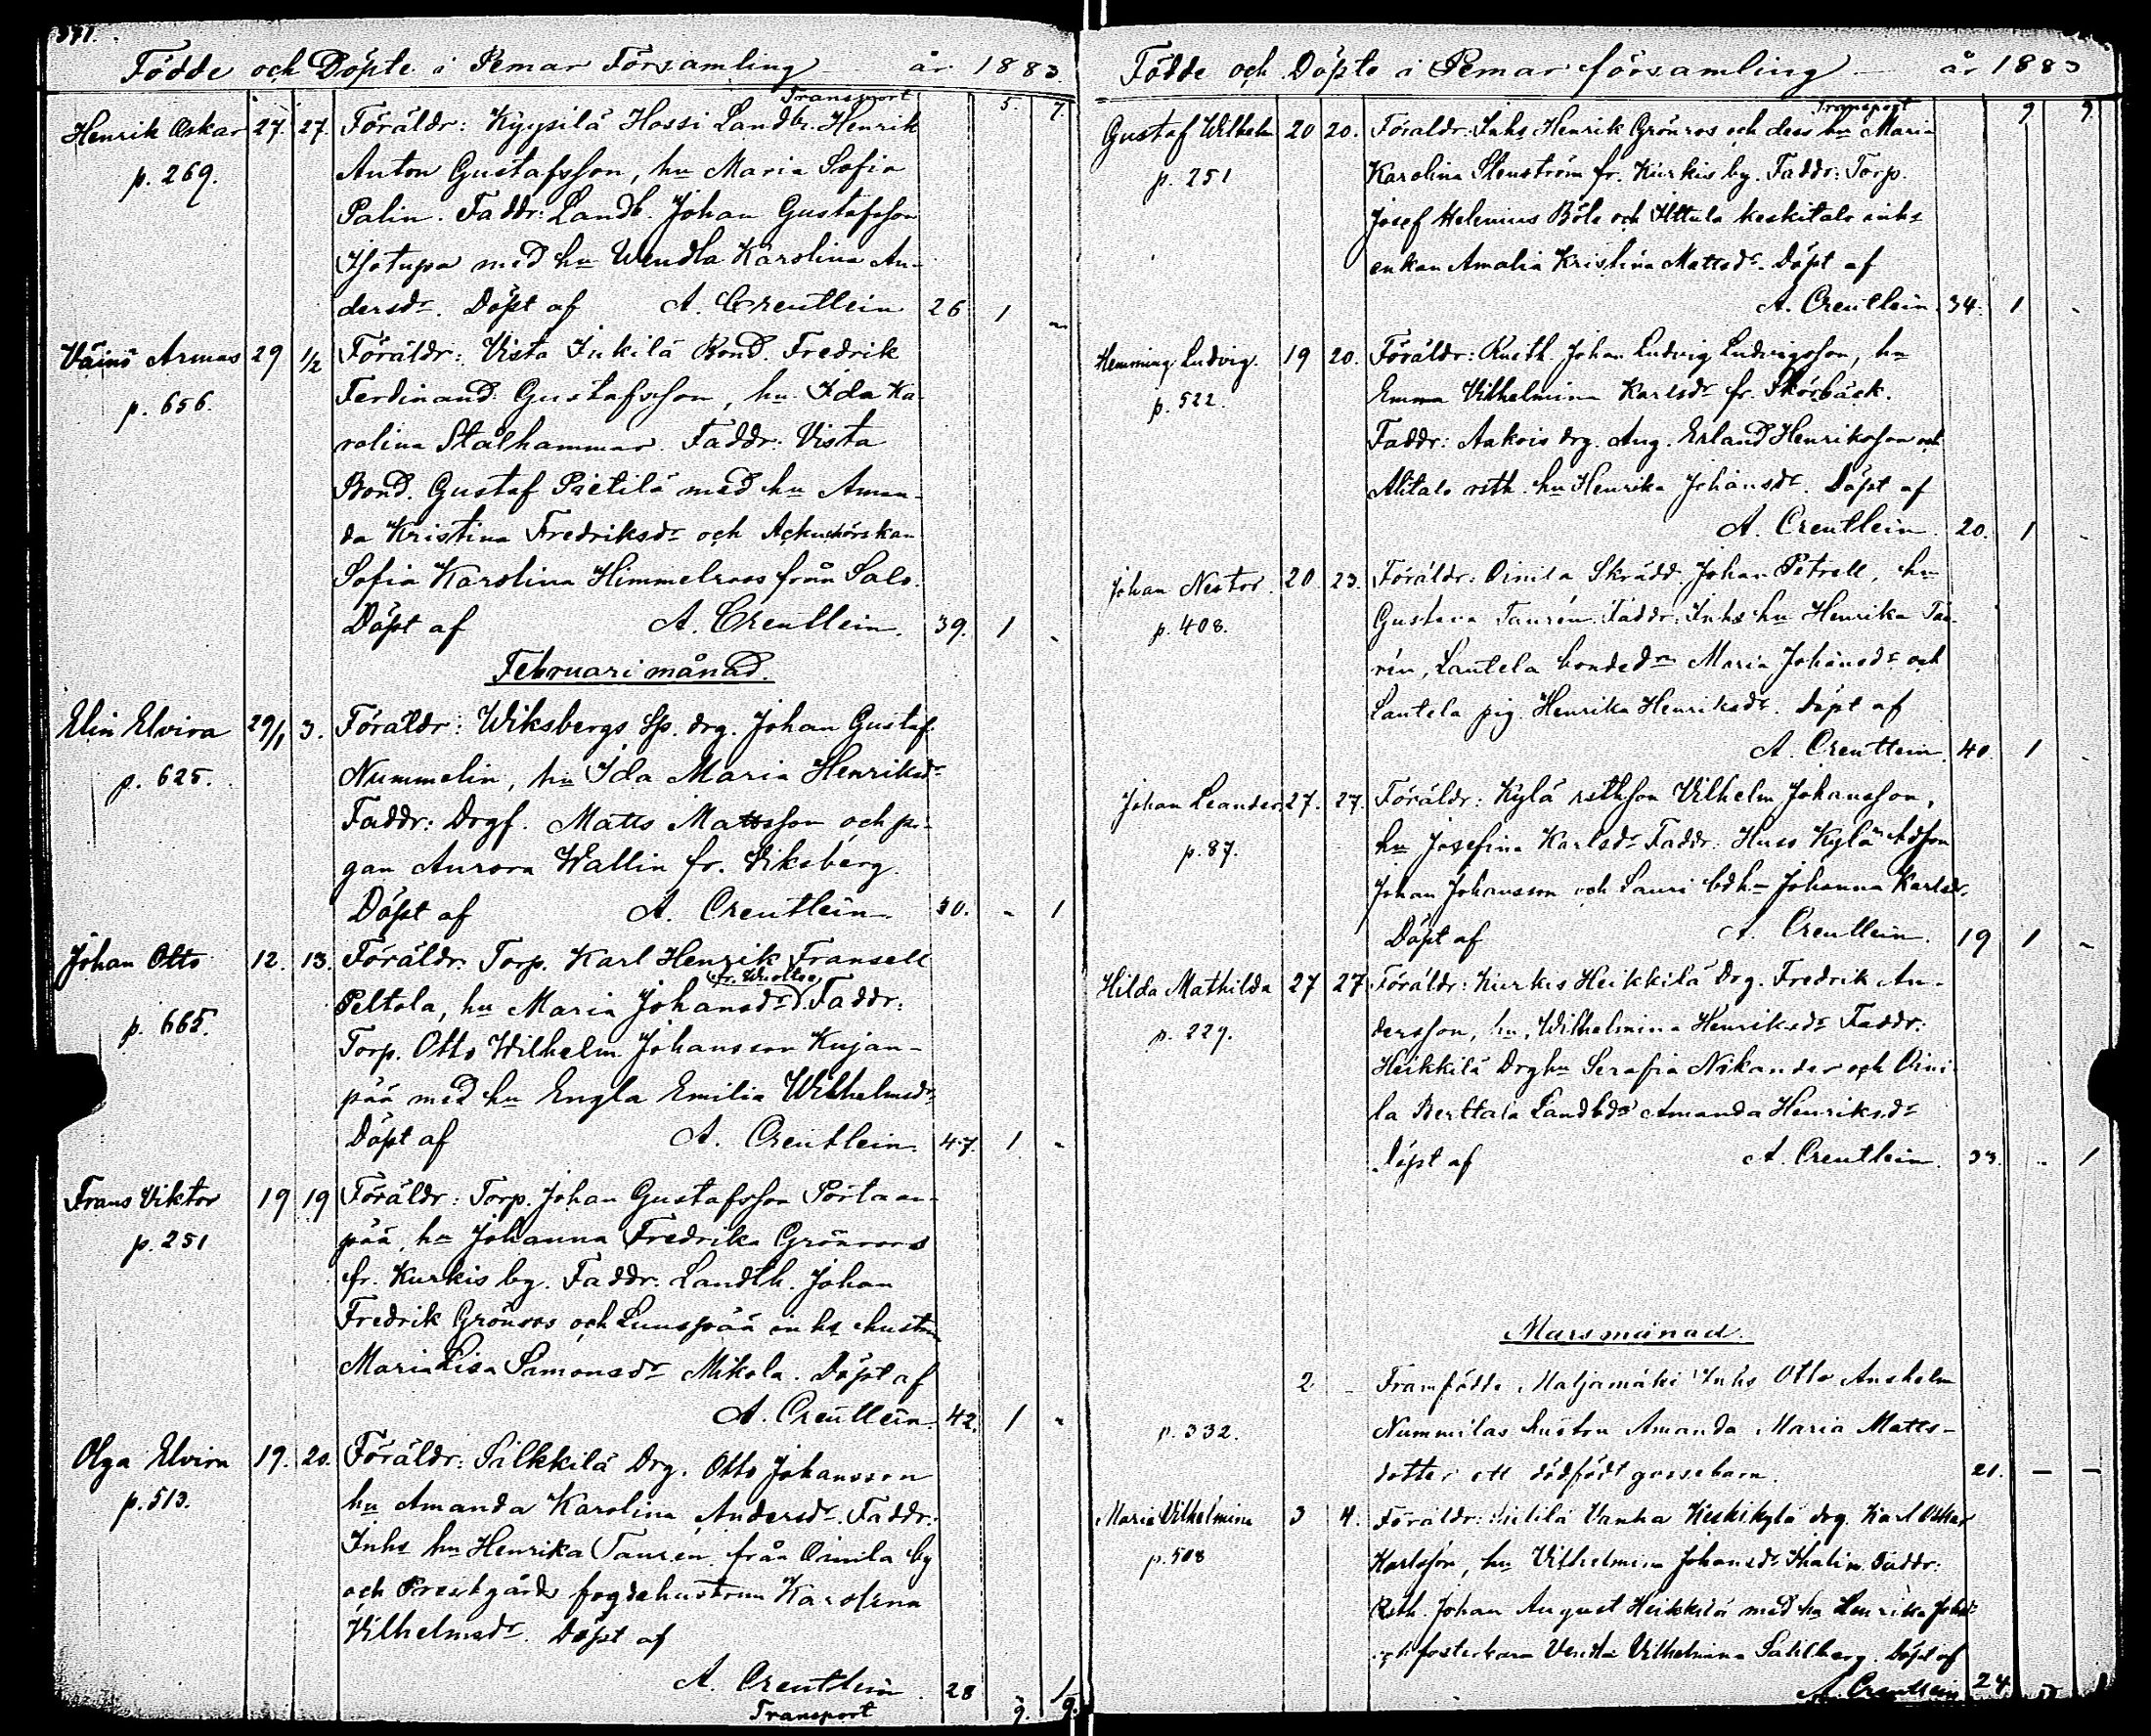 371.
Födde och Döpte i Pemar Församling år 1883
Transport 5. 7.
Henrik Oskar 27. 27. Föräldr: Kyysilä Hossi Landb. Henrik
p. 269. Anton Gustafsson, hu Maria Sofia
Palin. Faddr: Landb. Johan Gustafsson
Isotupa med hu Wendla Karolina An-
dersdr. Döpt af A. Creutlein 26 1 -
Väinö Armas 29 1/2 Föräldr: Vista Inkilä Bond. Fredrik
p. 656. Ferdinand Gustafsson, hu Ida Ka
rolina Stålhammar. Faddr: Vista
Bond. Gustaf Pietilä med hu Aman-
da Kristina Fredriksdr och Ackuchörskan
Sofia Karolina Himmelroos från Salo.
Döpt af A. Creutlein. 39. 1 -
Februari månad.
Elin Elvira 29/1 3. Föräldr: Wiksbergs Sp. drg. Johan Gustaf
p. 625. Nummelin, hu Ida Maria Henriksdr
Faddr: Drgf. Matts Mattsson och pi-
gan Aurora Wallin fr. Viksberg.
Döpt af A. Creutlein 30. - 1
Johan Otto 12. 13. Föräldr: Torp. Karl Henrik Fransell
p. 665. Peltola, hu Maria Johansdr (fr. ). Faddr:
Torp. Otto Wilhelm Johansson Kujan-
pää med hu Engla Emilia Wilhelmsdr
Döpt af A. Creutlein. 47. 1 -
Frans Viktor 19 19 Föräldr: Torp. Johan Gustafsson Portaan-
p. 251 pää, hu Johanna Fredrika Grönroos
fr. Kurkis by. Faddr: Landtb. Johan
Fredrik Grönroos och Luuspää inhs hustru
Maria Lisa Simonsdr Mikola. Döpt af
A. Creutlein. 42. 1 -
Olga Elvira 19. 20. Föräldr: Silkkilä Drg. Otto Johansson
p. 513. hu Amanda Karolina Andersdr. Faddr:
Inhs hu Henrika Tauren från Oinila by
och Prestgårds fogdehustrun Karolina
Vilhelmsdr. Döpt af
A. Creutlein. 28 - 1
Transport 9. 9.
Födde och Döpte i Pemar församling år 1883
Transport 9 9.
Gustaf Wilhelm 20 20. Föräldr: Inhs Henrik Grönros och dess hu Maria
p. 251 Karolina Stenström fr. Kurkis by. Faddr: Torp.
Josef Helenius Böle och Yttula keskitalo inhs
enkan Amalia Kristina Mattsdr. Döpt af
A. Creutlein. 34. 1 -
Hemming Ludvig. 19 20. Föräldr: Rusth. Johan Ludvig Ludvigsson, hu
p. 522. Emma Vilhelmina Karlsdr fr. Skörbäck.
Faddr: Aakois drg. Aug. Erland Henriksson och
Alitalo rsth. hu Henrika Johansdr. Döpt af
A. Creutlein. 20. 1 -
Johan Nestor. 20. 23. Föräldr: Oinila Skrädd. Johan Petrell, hu
p. 408. Gustava Taurén. Faddr: Inhs hu Henrika Tau-
rén, Lautela bondedr Maria Johansdr och
Lautela pig. Henrika Henriksdr. Döpt af
A. Creutlein. 40. 1 -
Johan Leander 27. 27. Föräldr: Kylä rsthson Vilhelm Johansson,
p. 87. hu Josefina Karlsdr Faddr: Huso Kylä
Johan Johansson och Lauri bdhu Johanna Karlsdr.
Döpt af A. Creutlein. 19 1 -
Hilda Mathilda 27 27 Föräldr: Kurkis Heikkilä Drg. Fredrik An-
p. 229. dersson, hu Wilhelmina Henriksdr Faddr:
Heikkilä Drghu Serafia Nikander och Oini
la Berttala Landbdr Amanda Henriksdr
Döpt af A. Creutlein. 33. - 1
Mars månad.
2 - Framfödde Maljamäki Inhs Otto Anshelm
p. 332. Nummilas hustru Amanda Maria Matts-
dotter ett dödfödt gossebarn. 21. - -
Maria Vilhelmina 3 4. Föräldr: Vanha Keskikylä drg. Karl Oskar
p. 508 Karlsson, hu Vilhelmina Johansdr Thalin. Faddr:
Rsth. Johan August Heikkilä med hu Henrika Johdr
och fosterbarn Vendla Vilhelmina Sahlberg. Döpt af
A. Creutlein 24 1